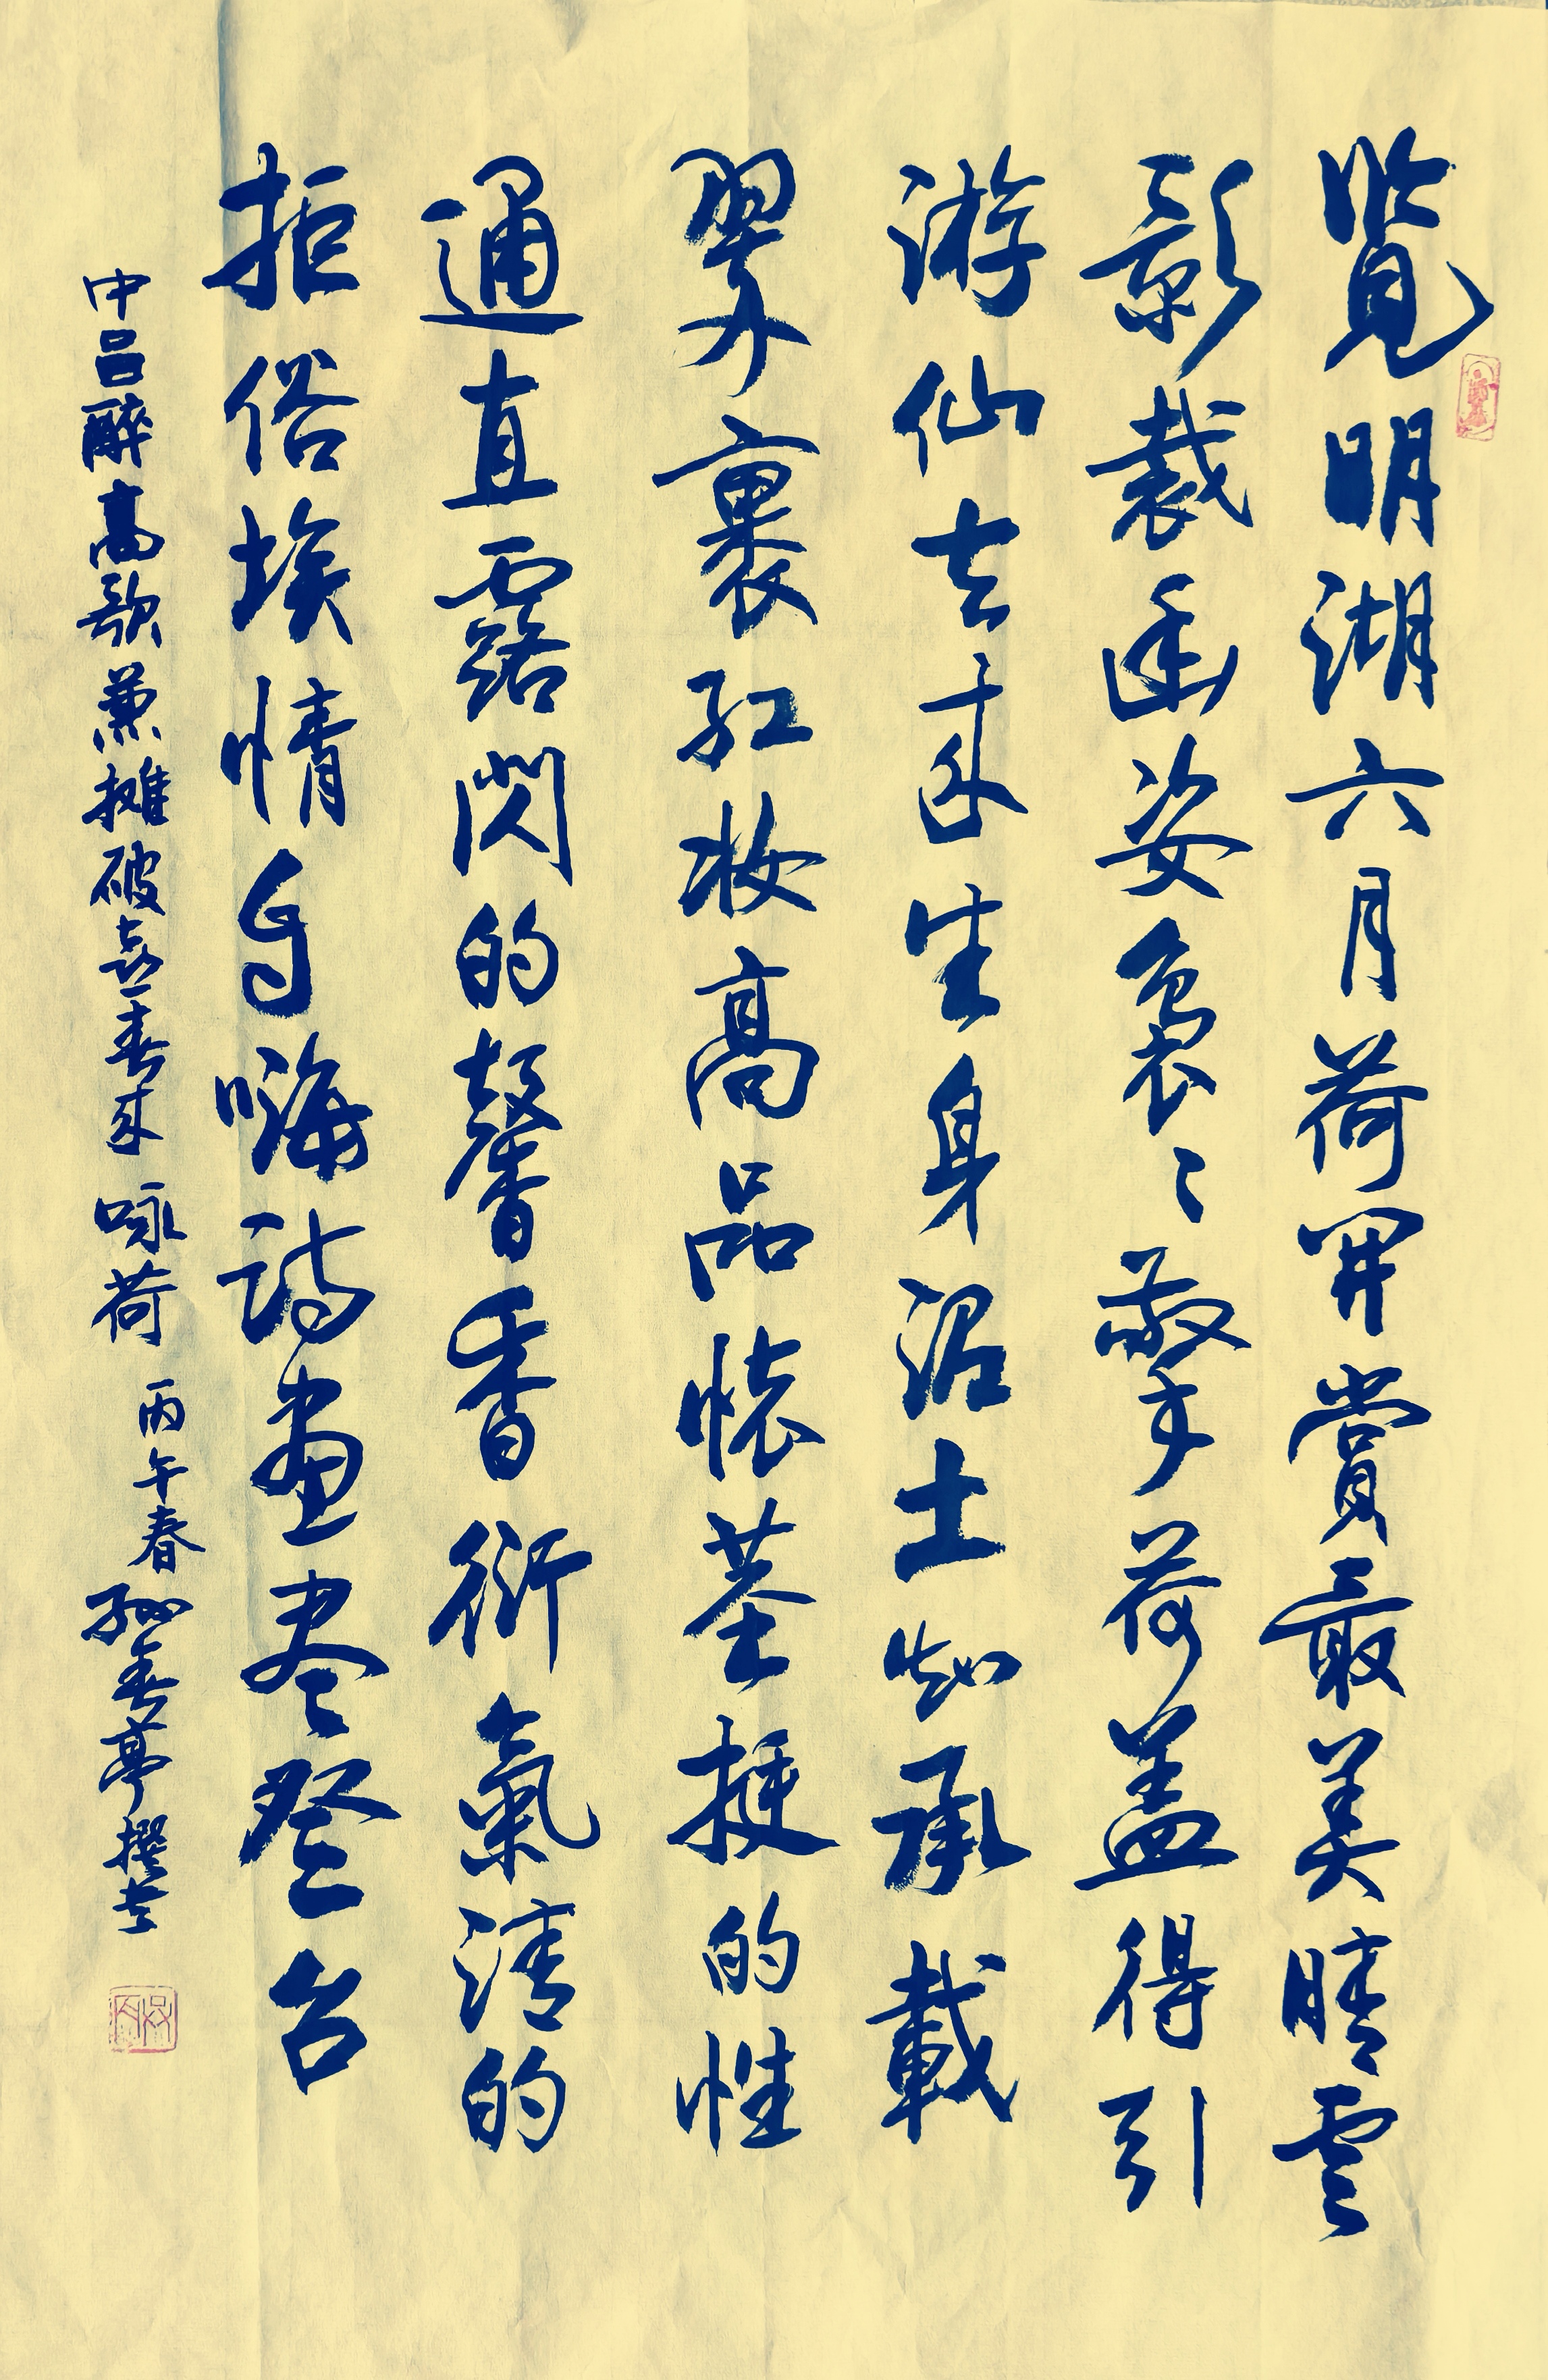 覽明湖六月荷開賞最美晴雲
影裁逐姿裊々擎荷蓋得引
游仙去來生身沼土知承載
翠裹紅妝高品懷莖挺的性
通直露閃的馨香衍氣清的
拒俗埃情自嗨詩畫盡登台
中吕醉高歌兼攤破喜春來 咏荷 丙午春 孫春亭撰書